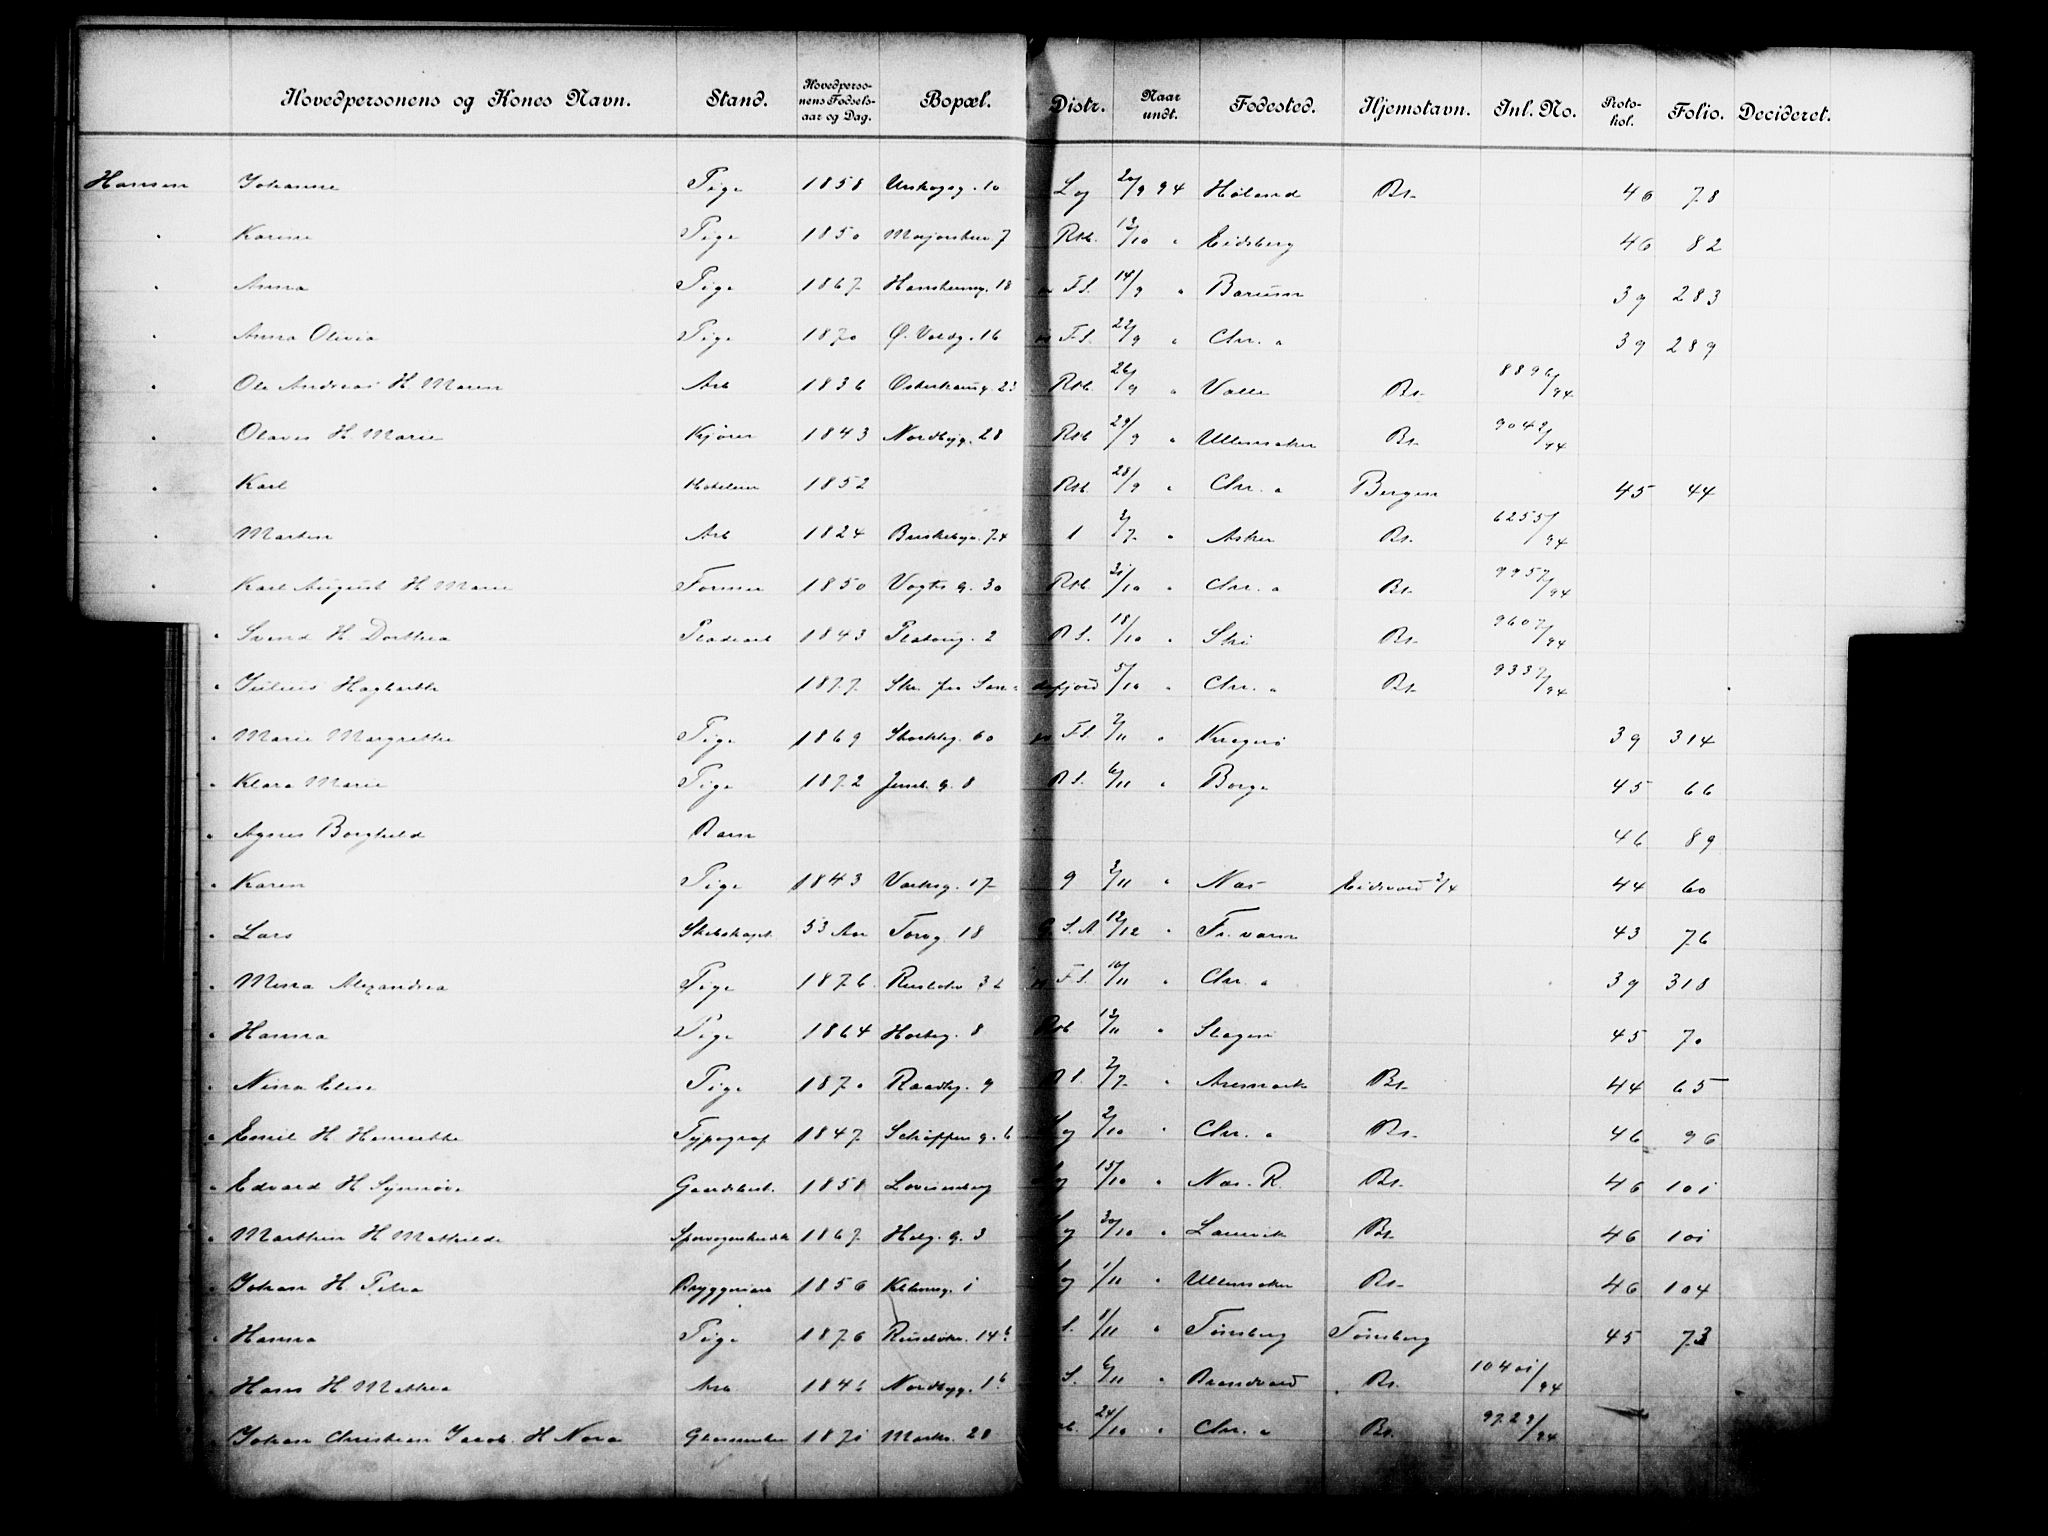 Hovedpersonens og Kones Navn. Stand. Hovedperso-nens Fødsels-aar og Dag. Bopæl. Distr. Naar undt. Fødested. Hjemstavn. Inl. No. Proto-kol. Folio. Decideret.
Hansen Johanne Pige 1858 Urskogsg. 10 Lg 20/9 94 Høland Bs. 46 78
" Karine Pige 1850 Majorstuv. 7 Rst. 12/10 " Eidsberg 46 82
" Anna Pige 1867 18 F.S. 14/9 " Bærum 39 283
" Anna Olivia Pige 1870 Ø. Voldg. 16 F.S. 22/9 " Chr. a 39 289
" Ole Andreas H. Maren Arb 1836 Osterhausg. 23 Rst. 26/9 " Valle Bs. 8896/94
" Olaves H. Marie Kjører 1843 Nordbyg. 28 Rst. 29/9 " Ullensaker Bs. 9042/94
" Karl 1852 Rst. 28/9 " Chr. a Bergen 45 44
" Martin Arb 1824 Briskebyv. 74 1 2/7 " Asker Bs. 6255/94
" Karl August H. Marie Former 1850 Vogts g. 30 Rst. 31/10 " Chr. a Bs. 9957/94
" Svend H. Dorthea 1843 Platoug. 2 R S. 18/10 " Ski Bs. 9607/94
" Julius Hagbarth 1877 Skr. fra San-defjord 5/10 " Chr. a Bs. 9337/94
" Marie Margrethe Pige 1869 Storthg. 60 F.S. 7/11 " Kragerø 39 314
" Klara Marie Pige 1872 Jensb. g. 8 R S. 6/11 " Borge 45 66
" Agnes Borghild Barn 46 89
" Karen Pige 1843 Vaterlg. 17 9 3/11 " Næs Eidsvold 2/4 44 60
" Lars 53 Aar Torvg. 18 G. S. A. 12/12 " Fr. værn 43 76
" Mina Alexandra Pige 1876 Ruseløkv. 36 F.S. 10/11 " Chr. a 39 318
" Hanna Pige 1864 Holbg. 8 Rst 12/11 " Slagen 45 70
" Nina Elise Pige 1870 Raadhg. 9 R S. 7/7 " Aremark Bs. 44 65
" Emil H. Henriette Typograf 1847 Schøffers g. 6 Lg 2/10 " Chr. a Bs. 46 96
" Edvard H. Synnøve Gaardsbest. 1858 Lovisenberg Lg 15/10 " Næs. R. Bs. 46 101
" Marthin H. Mathilde Sporvognskudsk 1867 Helg. g. 3 Lg 30/10 " Laurvik Bs. 46 101
" Johan H. Petra Bryggeriarb 1856 1 Lg 1/11 " Ullensaker Bs. 46 104
" Hanna Pige 1876 Ruseløkv. 14 b S. 8/11 " Tønsberg Tønsberg 45 73
" Hans H. Mathea Arb 1846 Nordbyg. 16 S. 6/11 " Brandvold Bs. 10401/94
" Johan Christian Jacob H. Nora Glasmester 1871 Markv. 28 24/10 " Chr. a Bs. 9729/94